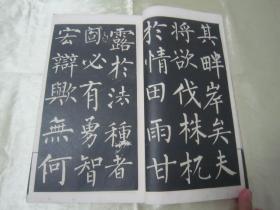 其畔岸矣夫
將欲伐株杌
於情田雨甘
露於法種者
固必有勇智
宏辯歟無何